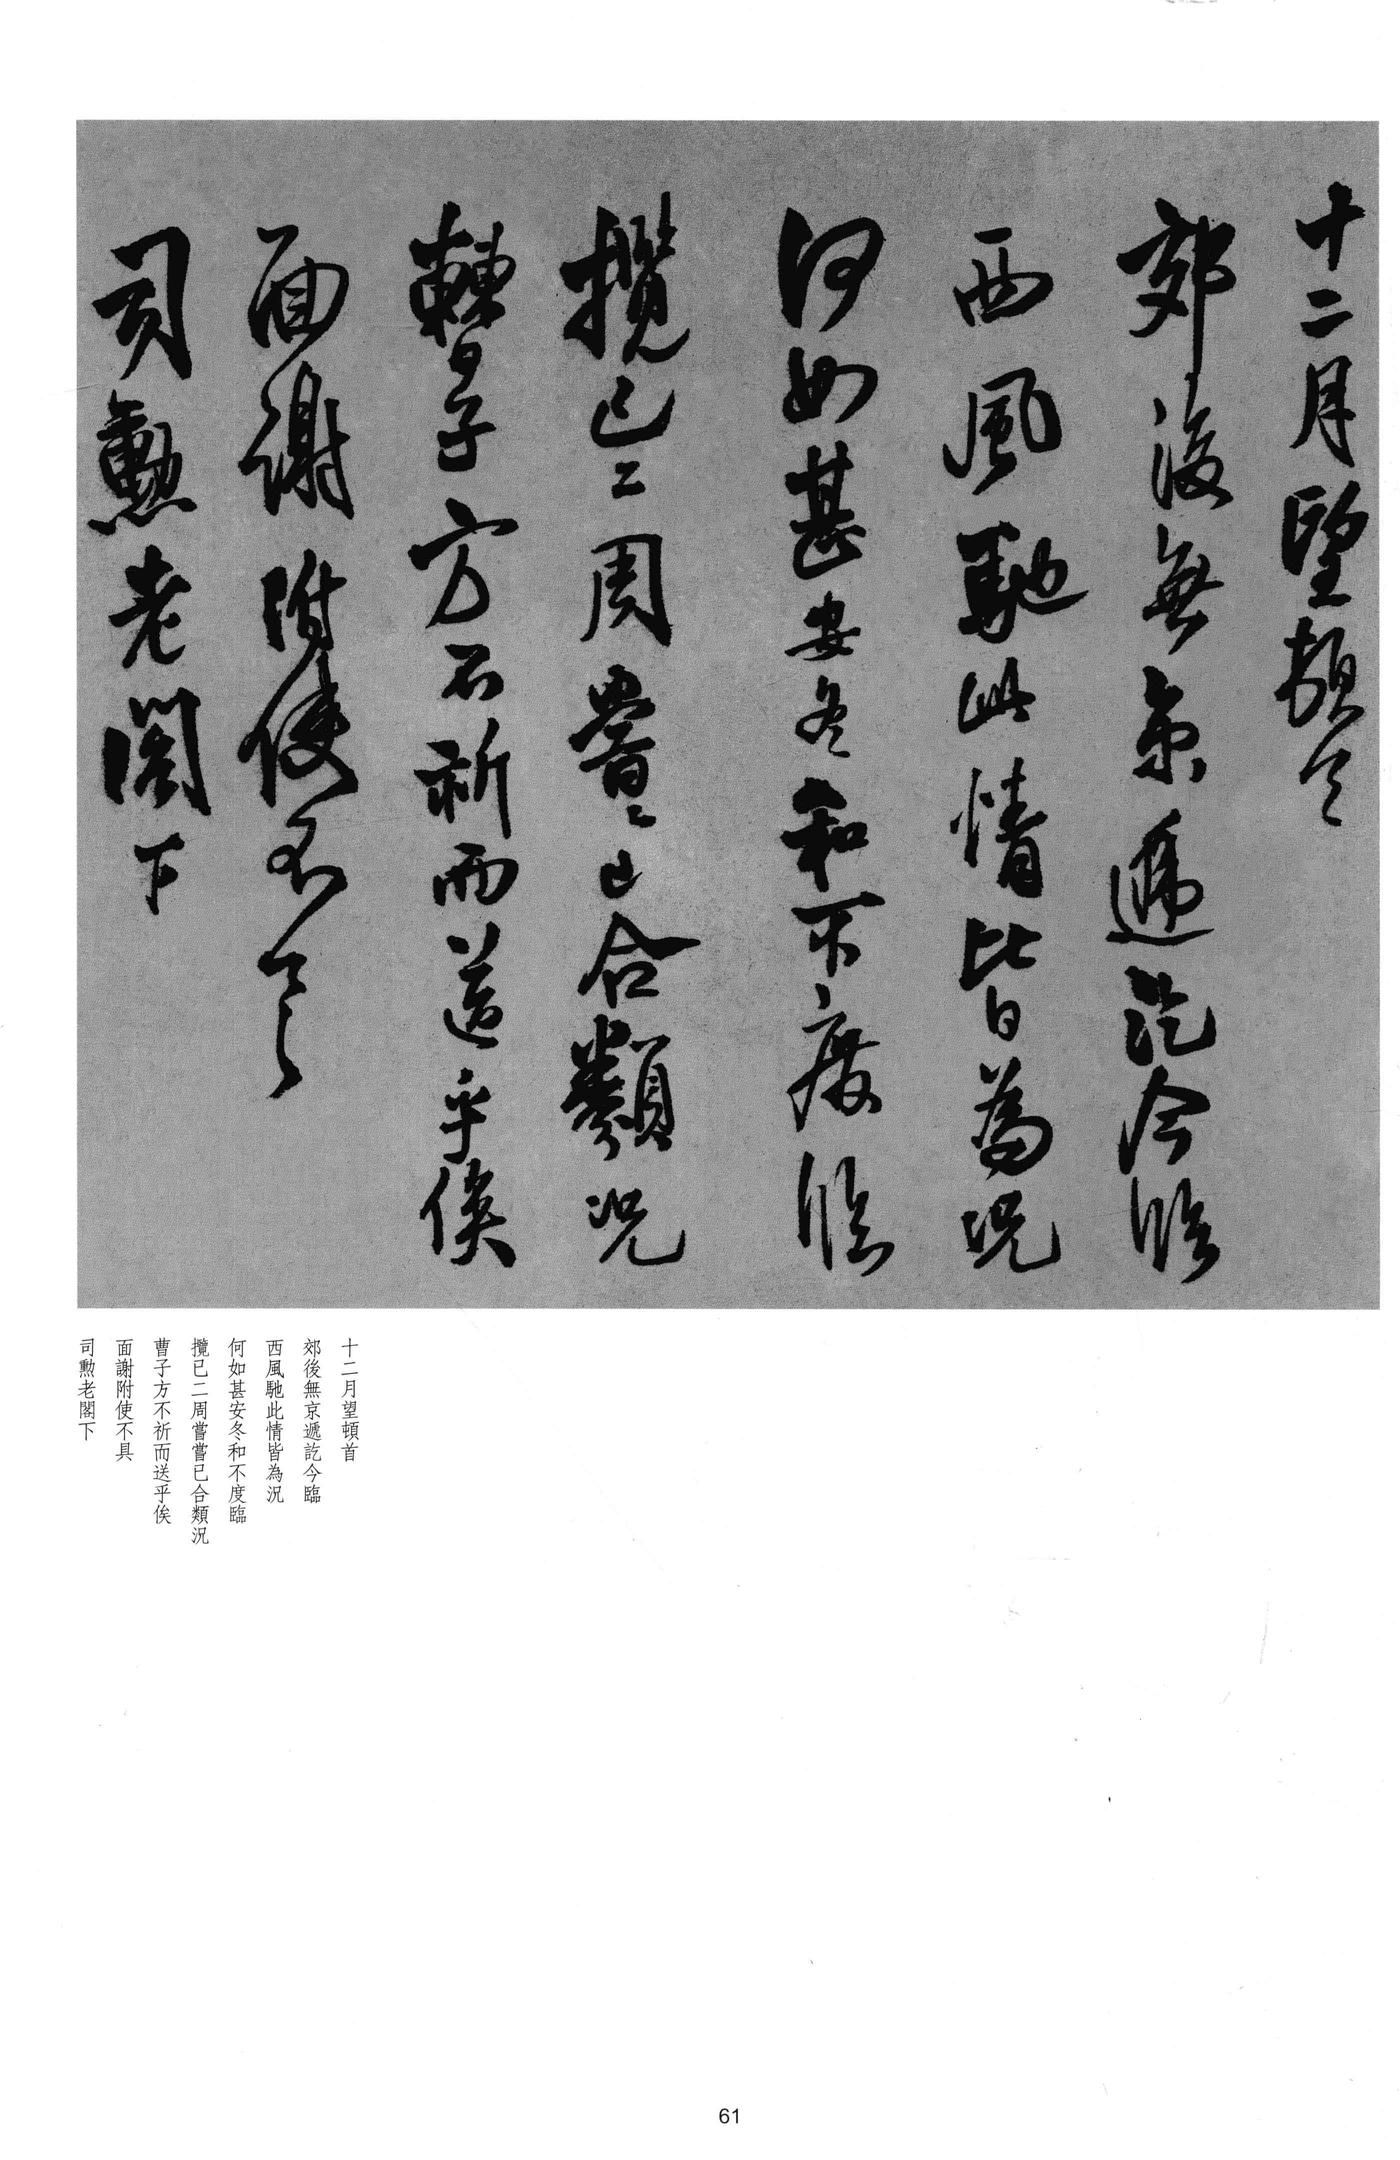 十二月望頓首
郊後無京遞訖今臨
西風馳此情皆為況
何如甚安冬和不度臨
攬已二周嘗嘗已合類況
曹子方不祈而送乎俟
面謝附使不具
司勲老閣下
十二月望頓首
郊後無京遞訖今臨
西風馳此情皆為況
何如甚安冬和不度臨
攬已二周嘗嘗已合類況
曹子方不祈而送乎俟
面謝附使不具
司勲老閣下
61